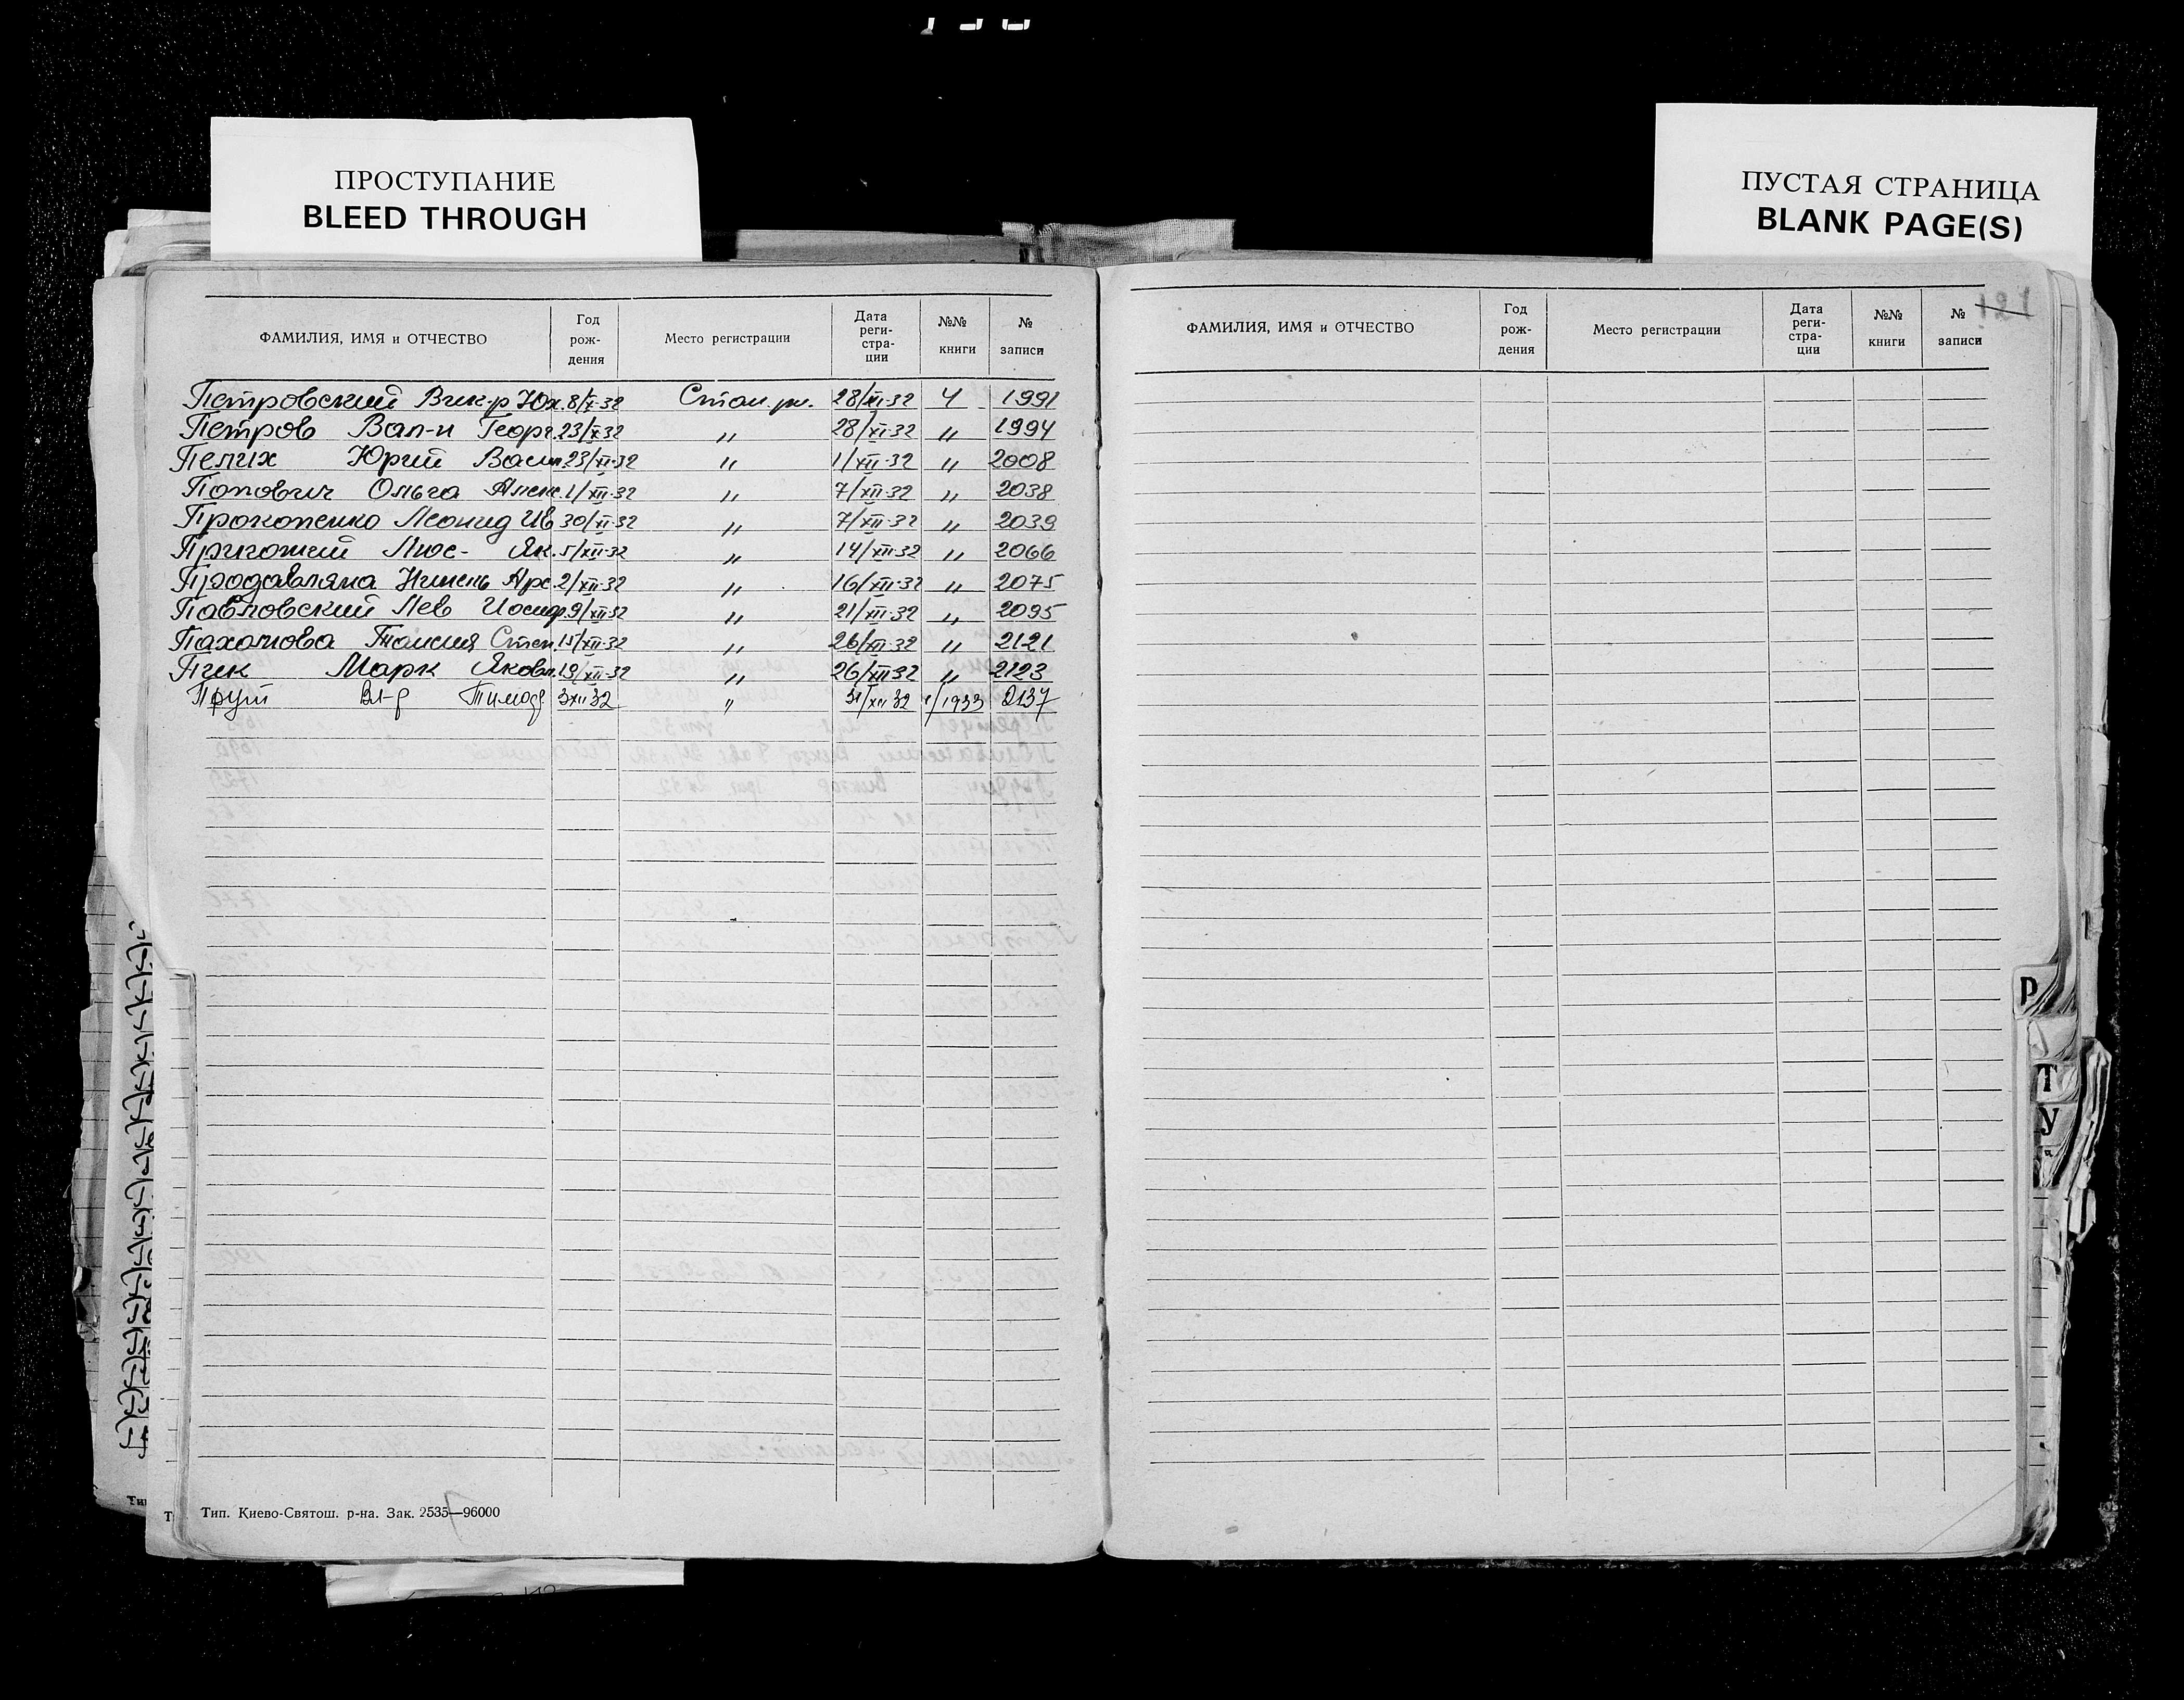 ПРОСТУПАНИЕ
BLEED THROUGH
ПУСТАЯ СТРАНИЦА
BLANK PAGE(S)
ФАМИЛИЯ, ИМЯ и ОТЧЕСТВО Год рож- дения Место регистрации Дата реги- стра- ции №№ книги № записи
Петровский Вик-р Юх. 8/X-32 Стал. рн. 28/XI-32 4 1991
Петров Вал-и Георг. 23/X-32 " 28/XI-32 " 1994
Пелих Юрий Васил. 23/XI-32 " 1/XII-32 " 2008
Попович Ольга Алекс. 1/XII-32 " 7/XII-32 " 2038
Прокопенко Леонид Ив 30/XI-32 " 7/XII-32 " 2039
Пригожий Люс- Як. 5/XII-32 " 14/XII-32 " 2066
Арс. 2/XII-32 " 16/XII-32 " 2075
Павловский Лев Иосиф. 9/XII-32 " 21/XII-32 " 2095
Пахомова Таисия Степ. 15/XII-32 " 26/XII-32 " 2121
Пик Марк Яковл. 19/XII-32 " 26/XII-32 " 2123
Прут Вл-р Тимоф. 3XII32 " 31/XII 32 1/1933 2137
Тип. Киево-Святош. р-на. Зак. 2535—96000
121
ФАМИЛИЯ, ИМЯ и ОТЧЕСТВО Год рож- дения Место регистрации Дата реги- стра- ции №№ книги № записи
Р
Т
У